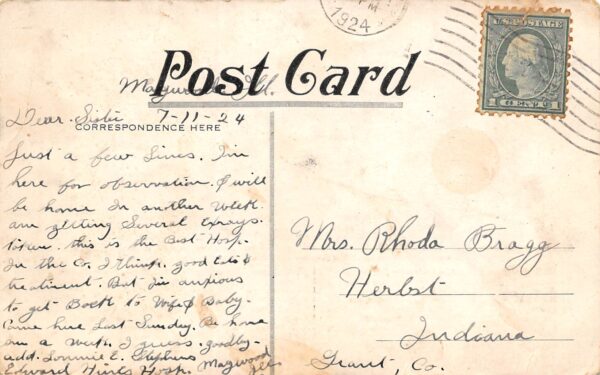 1924
PM
U.S. POSTAGE
Post Card
Maywood Ill.
7-11-24
Dear Sister
CORRESPONDENCE HERE
Just a few Lines. I'm
here for observation. I will
be home in another week.
am getting Several Exrays.
taken. this is the Best Hosp.
In the Co. I think. good Eats &
treatment. But I'm anxious
to get Back to Wife & Baby.
Came here Last Sunday. Be home
in a week, I guess. goodby-
add. Lonnie E. Stephens
Edward Hines Hosp. Maywood
Ills
Mrs. Rhoda Bragg
Herbst
Indiana
Grant, Co.